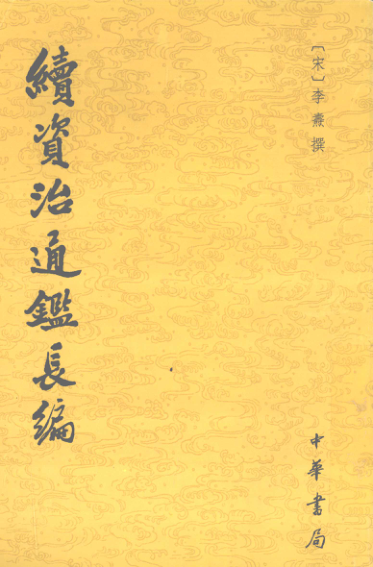 [宋]李燾撰
續資治通鑑長編
中華書局